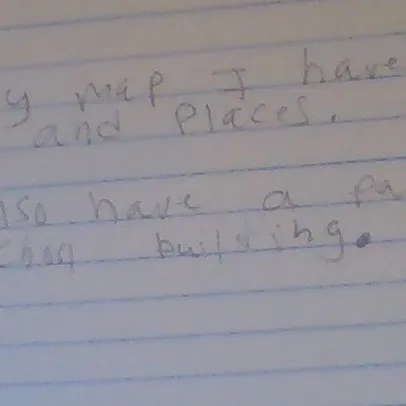 y map I have
and Places.
lso have a fa
building.